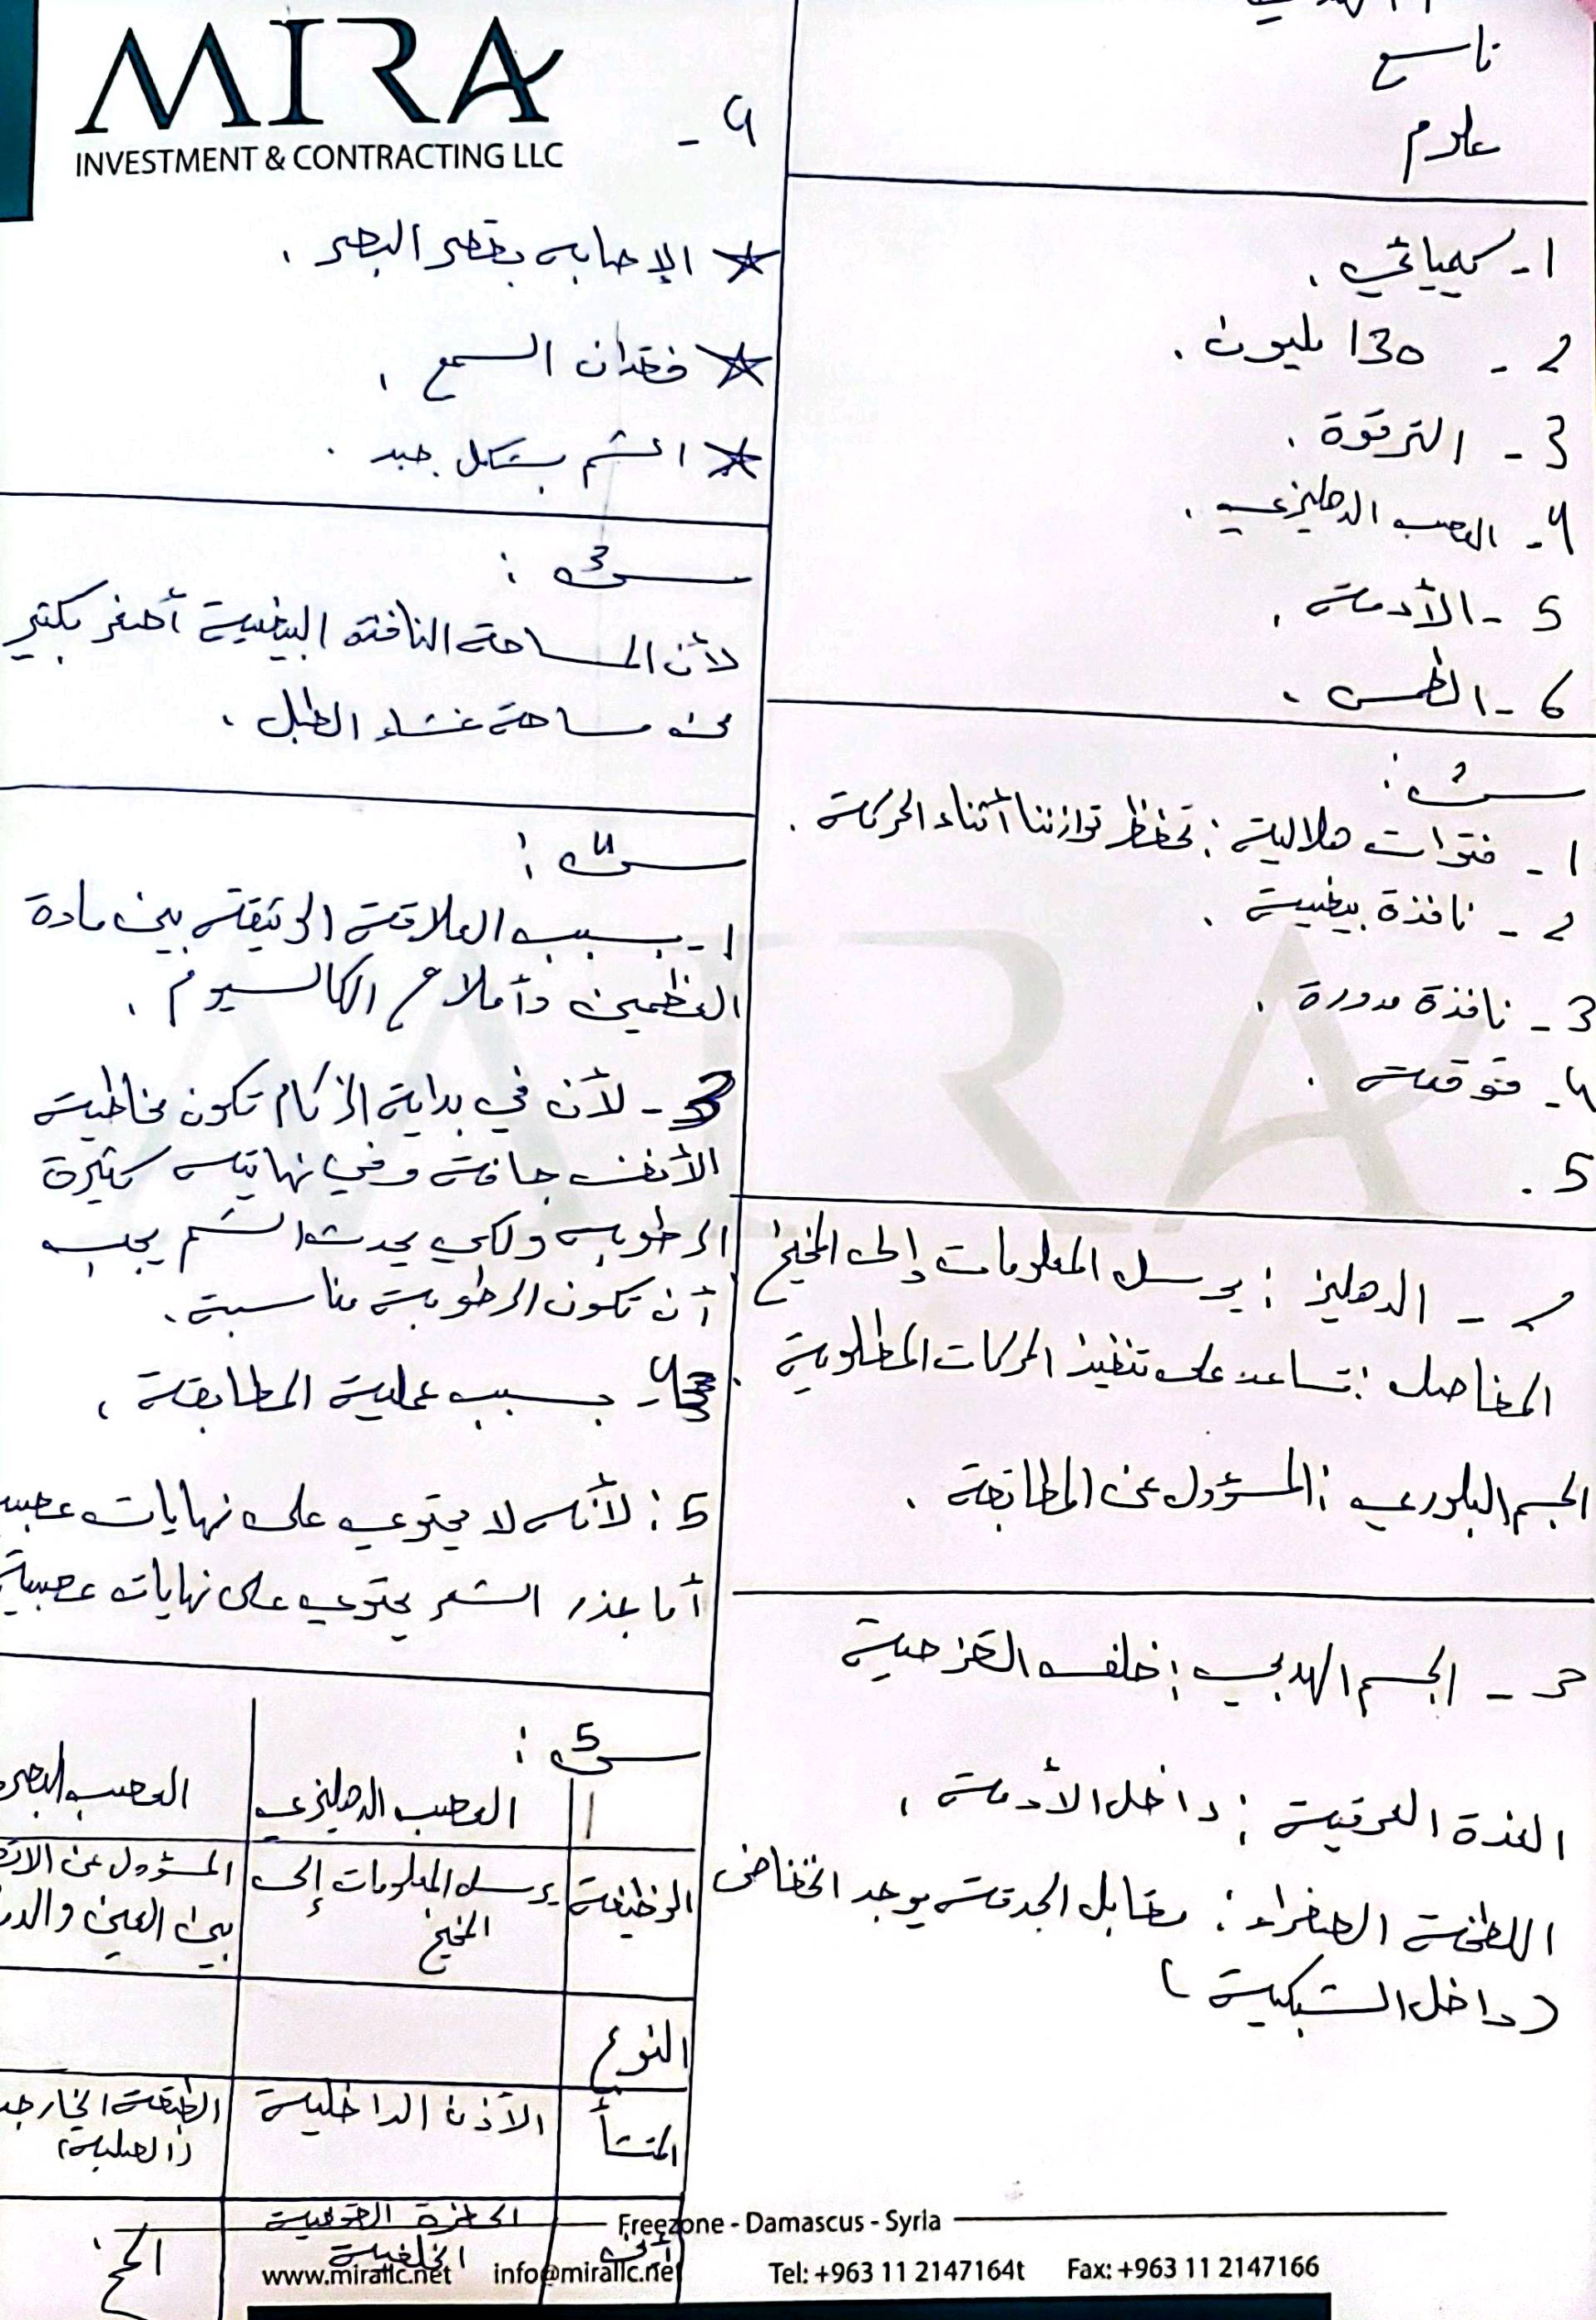 تاسع
علوم
1- كيميائي .
2 - 130 مليون .
3 - الترقوة .
4- العصب الدهليزي .
5 - الأدمة .
6 - الطمس .
س2 :
1 - قنوات هلالية : تحفظ توازننا أثناء الحركة .
2 - نافذة بيضية .
3 - نافذة مدورة .
4- قوقعة .
5 .
2 - الدهليز : يرسل المعلومات إلى المخيخ
المفاصل : تساعد على تنفيذ الحركات المطلوبة .
الجسم البلوري : المسؤول عن المطابقة .
3 - الجسم الهدبي : خلف القزحية
الغدة العرقية : داخل الأدمة .
اللطخة الصفراء : مقابل الحدقة يوجد انخفاض
(داخل الشبكية)
MIRA
INVESTMENT & CONTRACTING LLC
4 -
☆ الإصابة بقصر البصر .
☆ فقدان السمع .
☆ الشم بشكل جيد .
س3 :
لأن المساحة النافذة البيضية أصغر بكثير
من مساحة غشاء الطبل .
س4 :
1- بسبب العلاقة الوثيقة بين مادة
العظمين وأملاح الكالسيوم .
3 - لأن في بداية الزكام تكون مخاطية
الأنف جافة وفي نهايته كثيرة
الرطوبة ولكي يحدث الشم يجب
أن تكون الرطوبة مناسبة .
4- بسبب عملية المطابقة .
5 : لأنه لا يحتوي على نهايات
أما جذر الشعر يحتوي على نهايات عصبية
س5 :
العصب الدهليزي
الوظيفة يرسل المعلومات إلى المسؤول عن
المخيخ بين العين
النوع
المنشأ الأذن الداخلية الطبقة
(الصلبة)
الحفرة القوقعية المخ
الخلفية
Freezone - Damascus - Syria
www.mirallc.net info@mirallc.net Tel: +963 11 2147164t Fax: +963 11 2147166